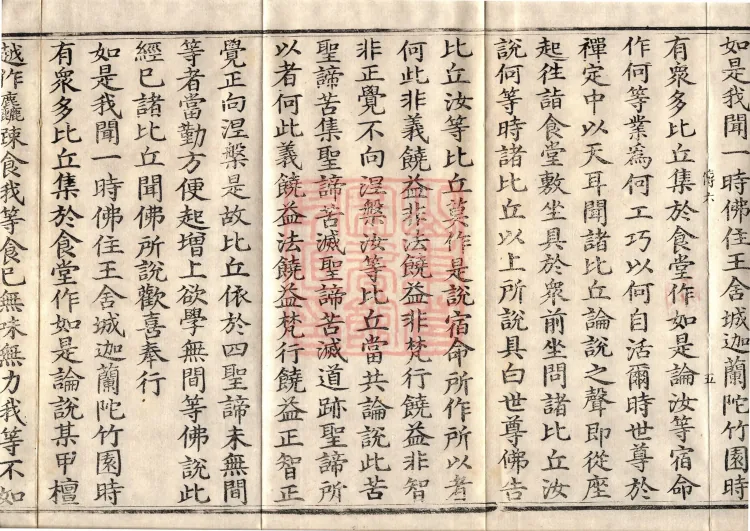 如是我聞一時佛住王舍城迦蘭陀竹園時
有眾多比丘集於食堂作如是論汝等宿命
作何等業為何工巧以何自活爾時世尊於
禪定中以天耳聞諸比丘論說之聲即從座
起往詣食堂敷坐具於眾前坐問諸比丘汝
說何等時諸比丘以上所說具白世尊佛告
比丘汝等比丘莫作是說宿命所作所以者
何此非義饒益非法饒益非梵行饒益非智
非正覺不向涅槃汝等比丘當共論說此苦
聖諦苦集聖諦苦滅聖諦苦滅道跡聖諦所
以者何此義饒益法饒益梵行饒益正智正
覺正向涅槃是故比丘依於四聖諦未無間
等者當勤方便起增上欲學無間等佛說此
經已諸比丘聞佛所說歡喜奉行
如是我聞一時佛住王舍城迦蘭陀竹園時
有眾多比丘集於食堂作如是論說某甲檀
越作麤踈食我等食已無味無力我等不如
五